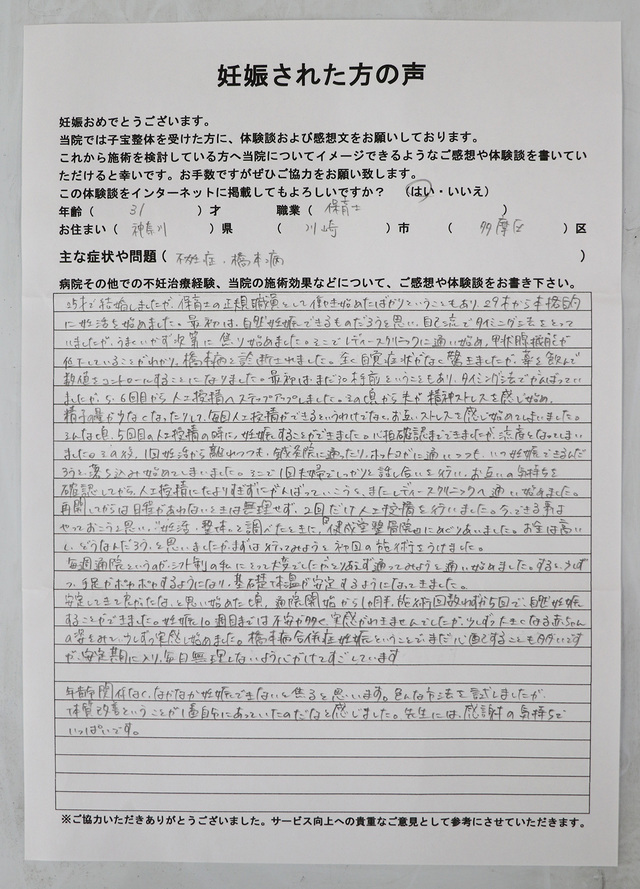 妊娠された方の声
妊娠おめでとうございます。
当院では子宝整体を受けた方に、体験談および感想文をお願いしております。
これから施術を検討している方へ当院についてイメージできるようなご感想や体験談を書いてい
ただけると幸いです。お手数ですがぜひご協力をお願い致します。
この体験談をインターネットに掲載してもよろしいですか？ （はい・いいえ）
年齢（ 31 ）才 職業（ 保育士 ）
お住まい（ 神奈川 ）県 （ 川崎 ）市 （ 多摩区 ）区
主な症状や問題（ 不妊症・橋本病 ）
病院その他での不妊治療経験、当院の施術効果などについて、ご感想や体験談をお書き下さい。
25才で結婚しましたが、保育士の正規職員として働き始めたばかりということもあり、29才から本格的
に妊活を始めました。最初は、自然妊娠できるものだろうと思い、自己流でタイミング法をとって
いましたが、うまくいかず次第に焦り始めました。そこでレディースクリニックに通い始め、甲状腺機能が
低下していることがわかり、橋本病と診断されました。全く自覚症状がなく驚きましたが、薬を飲んで
数値をコントロールすることになりました。最初はまだ30才前ということもあり、タイミング法でがんばってい
ましたが、5、6回目から人工授精へステップアップしました。その頃から夫が精神ストレスを感じ始め、
精子の量が少なくなったりして、毎回人工授精ができるというわけでなく、お互いストレスを感じ始めてしまいました。
そんな頃、5回目の人工授精の時に、妊娠することができました。心拍確認までできましたが、流産となってしまい
ました。その後、1回妊活から離れつつも、鍼灸院に通ったり、ホットヨガに通いつつも、いつ妊娠できるんだ
ろうと落ち込み始めてしまいました。そこで1回夫婦でしっかりと話し合いを行い、お互いの気持ちを
確認してから、人工授精にたよりすぎずにがんばっていこうと、またレディースクリニックへ通い始めました。
再開してからは日程があわないときは無理せず、2回だけ人工授精を行いました。今、できる事は
やっておこうと思い、"妊活・整体"と調べたときに、「健成堂整骨院」にめぐりあいました。お金は高い
し、どうなんだろう、と思いましたが、まずは行ってみようと初回の施術をうけました。
毎週通院というのが、シフト制の私にとって大変でしたが、とりあえず通ってみようと通い始めました。すると、少しず
つ、手足がポカポカするようになり、基礎体温が安定するようになってきました。
安定してきて良かったな、と思い始めた頃、通院開始から1か月半、施術回数わずか5回で、自然妊娠
することができました。妊娠10週目までは不安が多く、実感がわきませんでしたが、少しずつ大きくなる赤ちゃん
の姿をみて、少しずつ実感し始めました。橋本病合併症妊娠ということで、まだ心配することも多いです
が、安定期に入り、毎日無理しないよう心がけてすごしています
年齢関係なく、なかなか妊娠できないと焦ると思います。色んな方法を試しましたが、
体質改善ということが1番自分にあっていたのだなと感じました。先生には、感謝の気持ちで
いっぱいです。
※ご協力いただきありがとうございました。サービス向上への貴重なご意見として参考にさせていただきます。